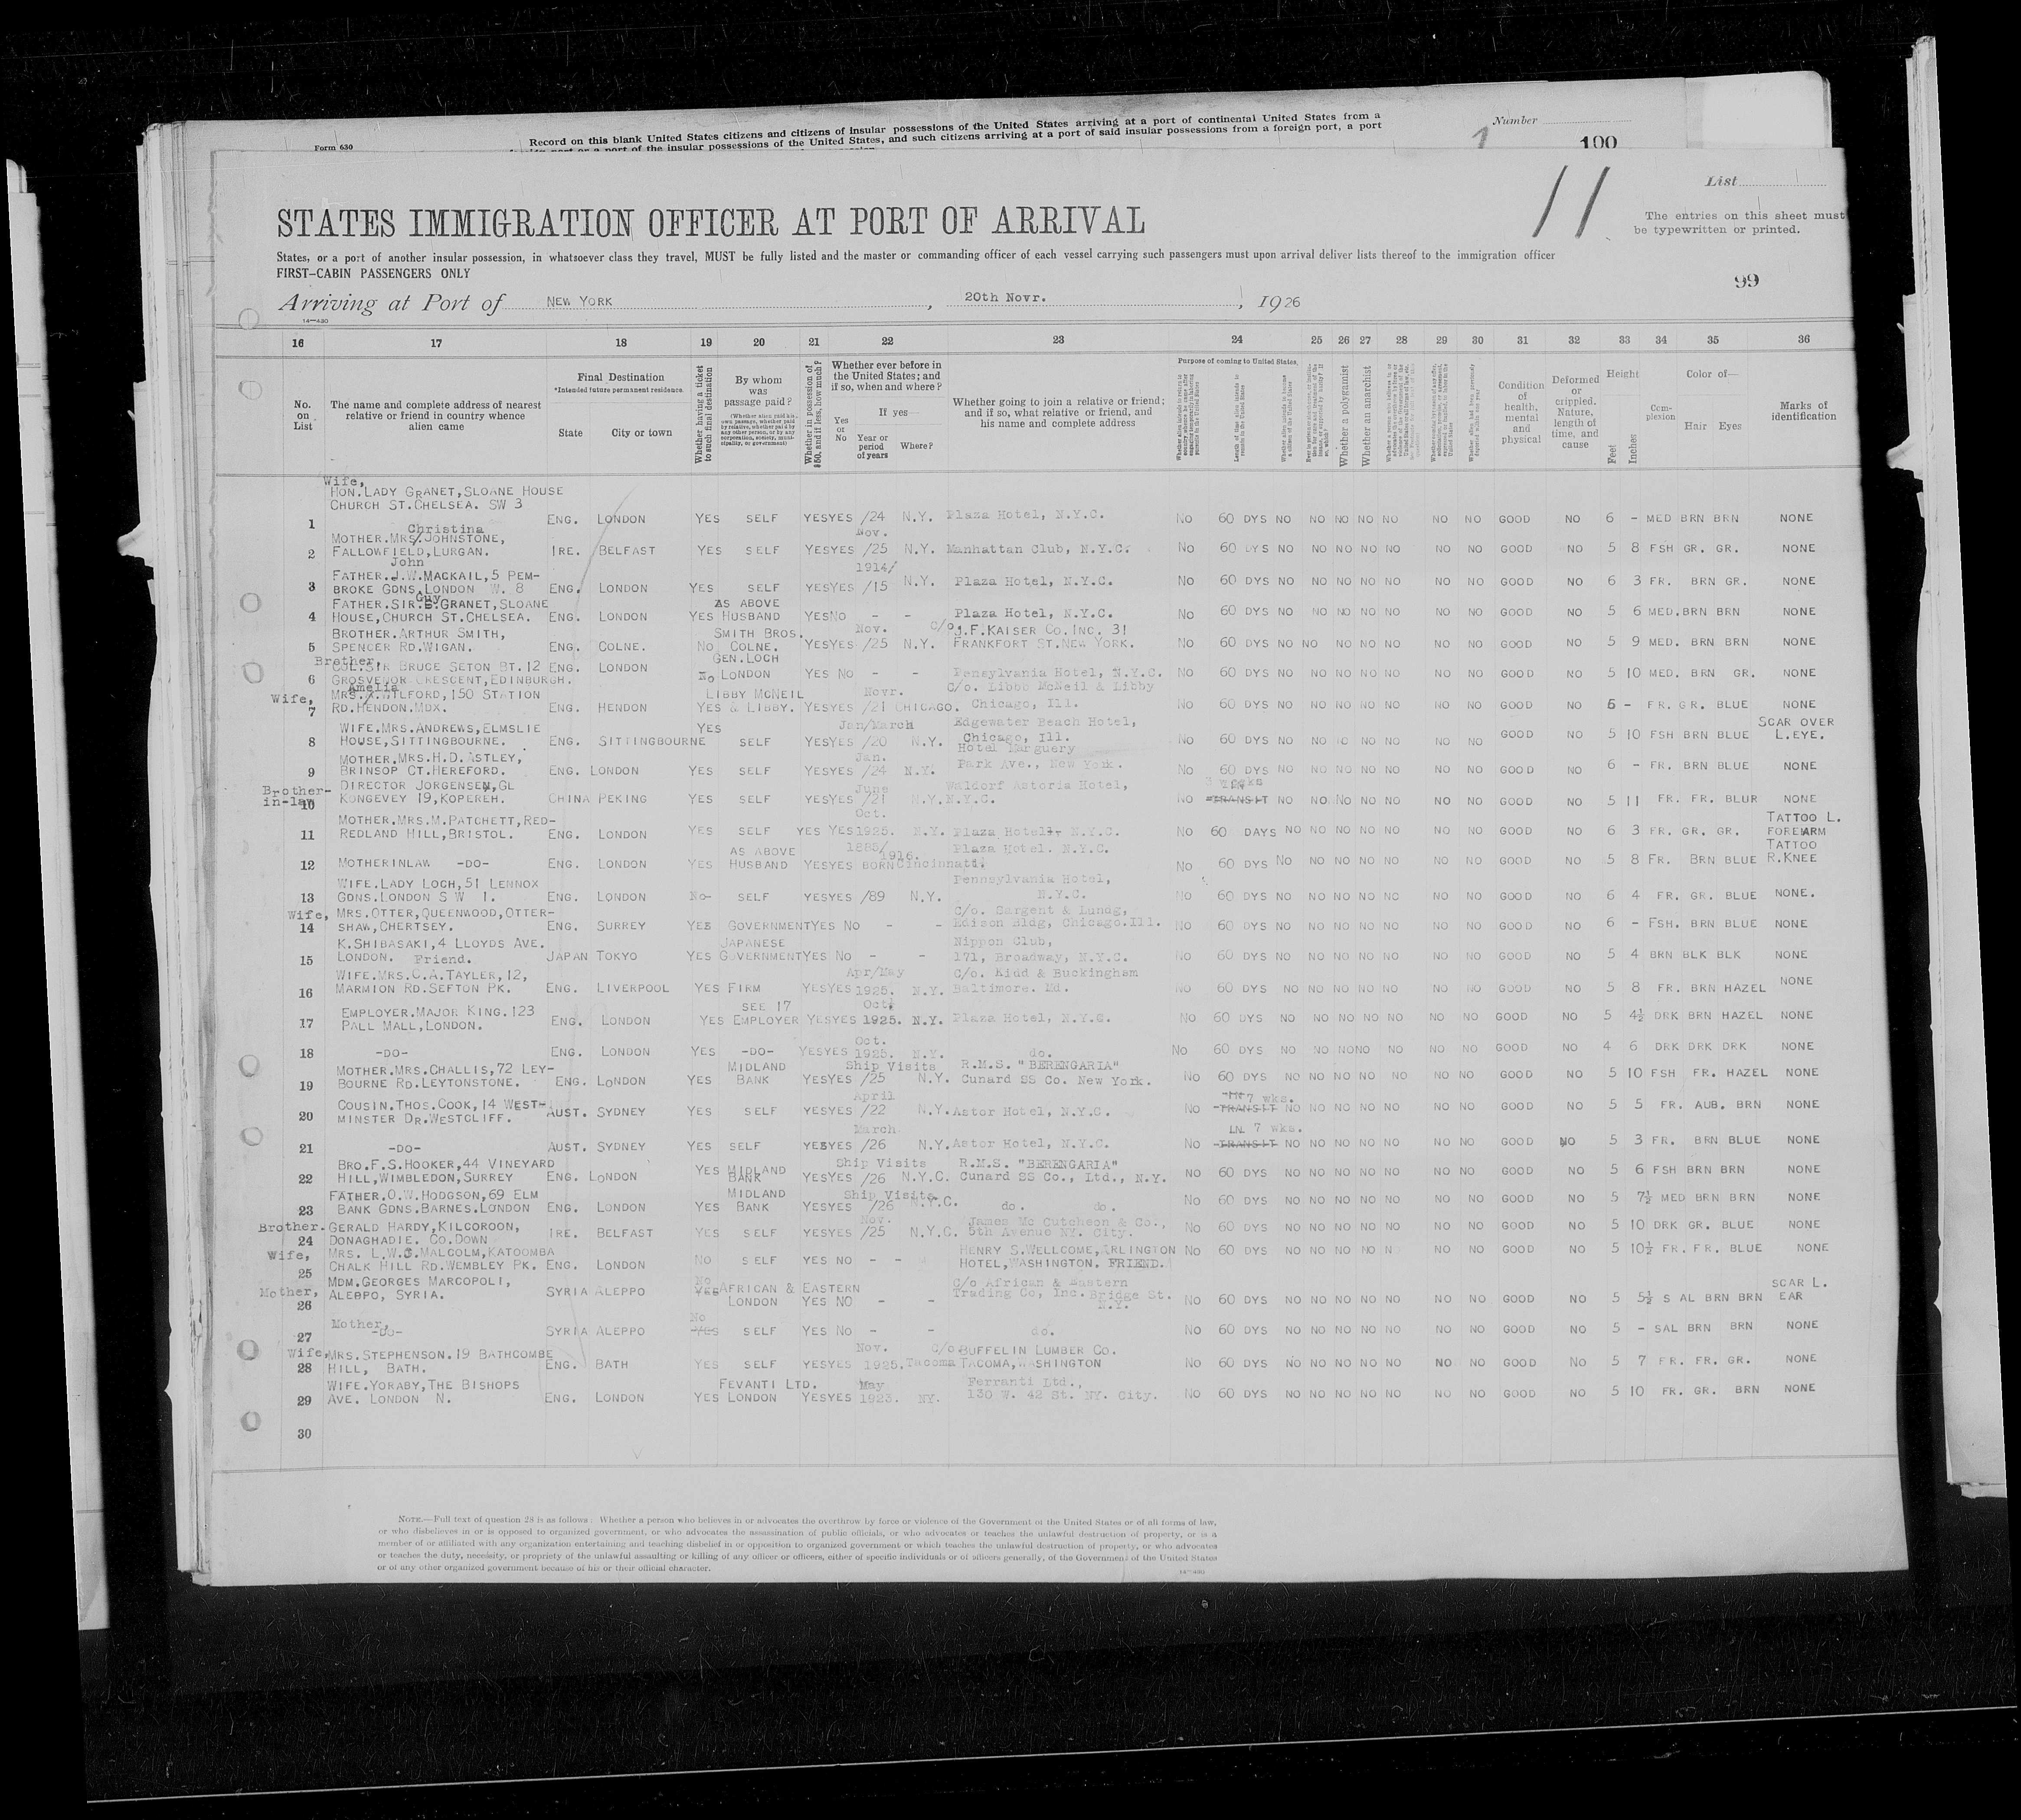 Form 630
Record on this blank United States citizens and citizens of insular possessions of the United States arriving at a port of continental United States from a
port or a port of the insular possessions of the United States, and such citizens arriving at a port of said insular possessions from a foreign port, a port
Number
100
11
List
The entries on this sheet must
be typewritten or printed.
STATES IMMIGRATION OFFICER AT PORT OF ARRIVAL
States, or a port of another insular possession, in whatsoever class they travel, MUST be fully listed and the master or commanding officer of each vessel carrying such passengers must upon arrival deliver lists thereof to the immigration officer
FIRST-CABIN PASSENGERS ONLY
99
Arriving at Port of NEW YORK, 20th Novr., 1926
14-430
16 17 18 19 20 21 22 23 24 25 26 27 28 29 30 31 32 33 34 35 36
No. on List
The name and complete address of nearest relative or friend in country whence alien came
Final Destination
*Intended future permanent residence
State
City or town
Whether having a ticket to such final destination
By whom was passage paid?
(Whether alien paid his own passage, whether paid by relative, whether paid by any other person, or by any corporation, society, municipality, or government)
Whether in possession of $50, and if less, how much?
Whether ever before in the United States; and if so, when and where?
Yes or No
If yes—
Year or period of years
Where?
Whether going to join a relative or friend; and if so, what relative or friend, and his name and complete address
Purpose of coming to United States.
Whether a polygamist
Whether an anarchist
Condition of health, mental and physical
Deformed or crippled. Nature, length of time, and cause
Height
Feet
Inches
Complexion
Color of—
Hair Eyes
Marks of identification
Wife,
HON. LADY GRANET, SLOANE HOUSE
CHURCH ST. CHELSEA. SW 3
1 ENG. LONDON YES SELF YES YES /24 N.Y. Plaza Hotel, N.Y.C. No 60 DYS NO NO NO NO NO NO NO GOOD NO 6 - MED BRN BRN NONE
Christina
MOTHER. MRS. JOHNSTONE, Nov.
2 FALLOWFIELD, LURGAN. IRE. BELFAST YES SELF YESYES /25 N.Y. Manhattan Club, N.Y.C. No 60 DYS NO NO NO NO NO NO NO GOOD NO 5 8 FSH GR. GR. NONE
John
FATHER. J.W. MACKAIL, 5 PEM- 1914/
3 BROKE GDNS. LONDON W. 8 ENG. LONDON YES SELF YESYES /15 N.Y. Plaza Hotel, N.Y.C. No 60 DYS NO NO NO NO NO NO NO GOOD NO 6 3 FR. BRN GR. NONE
Guy
FATHER. SIR. E. GRANET, SLOANE AS ABOVE
4 HOUSE, CHURCH ST. CHELSEA. ENG. LONDON YES HUSBAND YESNO - - Plaza Hotel, N.Y.C. No 60 DYS NO NO NO NO NO NO NO GOOD NO 5 6 MED. BRN BRN NONE
BROTHER. ARTHUR SMITH, SMITH BROS. Nov. C/o J.F. KAISER CO. INC. 31
5 SPENCER RD. WIGAN. ENG. COLNE. NO COLNE. YESYES /25 N.Y. FRANKFORT ST. NEW YORK. No 60 DYS NO NO NO NO NO NO NO GOOD NO 5 9 MED. BRN BRN NONE
Brother,
COL. SIR BRUCE SETON BT. 12 ENG. LONDON GEN. LOCH
6 GROSVENOR CRESCENT, EDINBURGH. No LONDON YES NO - - Pensylvania Hotel, N.Y.C. No 60 DYS NO NO NO NO NO NO NO GOOD NO 5 10 MED. BRN GR. NONE
Amelia
Wife, MRS. A. WILFORD, 150 STATION LIBBY MCNEIL Novr. C/o. Libbb McNeil & Libby
7 RD. HENDON. MDX. ENG. HENDON YES & LIBBY. YESYES /21 CHICAGO. Chicago, Ill. No 60 DYS NO NO NO NO NO NO NO GOOD NO 6 - FR. GR. BLUE NONE
WIFE. MRS. ANDREWS, ELMSLIE YES Jan/March Edgewater Beach Hotel, SCAR OVER
8 HOUSE, SITTINGBOURNE. ENG. SITTINGBOURNE SELF YESYES /20 N.Y. Chicago, Ill. No 60 DYS NO NO NO NO NO NO NO GOOD NO 5 10 FSH BRN BLUE L. EYE.
MOTHER. MRS. H.D. ASTLEY, Jan. Hotel Marguery
9 BRINSOP CT. HEREFORD. ENG. LONDON YES SELF YESYES /24 N.Y. Park Ave., New York. No 60 DYS NO NO NO NO NO NO NO GOOD NO 6 - FR. BRN BLUE NONE
Brother-in-law DIRECTOR JORGENSEN, GL June Waldorf Astoria Hotel, 3 weeks
10 KONGEVEY 19, KOPEREH. CHINA PEKING YES SELF YESYES /21 N.Y. N.Y.C. No TRANSIT NO NO NO NO NO NO NO GOOD NO 5 11 FR. FR. BLUR NONE
MOTHER. MRS. M. PATCHETT, RED- Oct. TATTOO L.
11 REDLAND HILL, BRISTOL. ENG. LONDON YES SELF YES YES 1925. N.Y. Plaza Hotel, N.Y.C. No 60 DAYS NO NO NO NO NO NO NO GOOD NO 6 3 FR. GR. GR. FOREARM
AS ABOVE 1885/1916. Plaza Hotel. N.Y.C. TATTOO
12 MOTHERINLAW -DO- ENG. LONDON YES HUSBAND YESYES BORN Cincinnati. No 60 DYS No NO NO NO NO NO NO GOOD NO 5 8 FR. BRN BLUE R. KNEE
WIFE. LADY LOCH, 51 LENNOX Pennsylvania Hotel,
13 GDNS. LONDON S W 1. ENG. LONDON No- SELF YESYES /89 N.Y. N.Y.C. No 60 DYS NO NO NO NO NO NO NO GOOD NO 6 4 FR. GR. BLUE NONE.
Wife, MRS. OTTER, QUEENWOOD, OTTER- C/o. Sargent & Lundg,
14 SHAW, CHERTSEY. ENG. SURREY YES GOVERNMENT YES NO - - Edison Bldg, Chicago. Ill. No 60 DYS NO NO NO NO NO NO NO GOOD NO 6 - FSH. BRN BLUE NONE
K. SHIBASAKI, 4 LLOYDS AVE. JAPANESE Nippon Club,
15 LONDON. Friend. JAPAN TOKYO YES GOVERNMENT YES NO - - 171, Broadway, N.Y.C. No 60 DYS NO NO NO NO NO NO NO GOOD NO 5 4 BRN BLK BLK NONE
WIFE. MRS. C.A. TAYLER, 12, Apr/May C/o. Kidd & Buckingham
16 MARMION RD. SEFTON PK. ENG. LIVERPOOL YES FIRM YESYES 1925. N.Y. Baltimore. Md. No 60 DYS NO NO NO NO NO NO NO GOOD NO 5 8 FR. BRN HAZEL NONE
EMPLOYER. MAJOR KING. 123 SEE 17 Oct.
17 PALL MALL, LONDON. ENG. LONDON YES EMPLOYER YESYES 1925. N.Y. Plaza Hotel, N.Y.C. No 60 DYS NO NO NO NO NO NO NO GOOD NO 5 4½ DRK BRN HAZEL NONE
Oct.
18 -DO- ENG. LONDON YES -DO- YESYES 1925. N.Y. do. No 60 DYS NO NO NO NO NO NO NO GOOD NO 4 6 DRK DRK DRK NONE
MOTHER. MRS. CHALLIS, 72 LEY- MIDLAND Ship Visits R.M.S. "BERENGARIA"
19 BOURNE RD. LEYTONSTONE. ENG. LONDON YES BANK YESYES /25 N.Y. Cunard SS Co. New York. No 60 DYS NO NO NO NO NO NO NO GOOD NO 5 10 FSH FR. HAZEL NONE
COUSIN. THOS. COOK, 14 WEST- April 7 wks.
20 MINSTER DR. WESTCLIFF. AUST. SYDNEY YES SELF YESYES /22 N.Y. Astor Hotel, N.Y.C. No TRANSIT NO NO NO NO NO NO NO GOOD NO 5 5 FR. AUB. BRN NONE
March IN 7 wks.
21 -DO- AUST. SYDNEY YES SELF YESYES /26 N.Y. Astor Hotel, N.Y.C. No TRANSIT NO NO NO NO NO NO NO GOOD NO 5 3 FR. BRN BLUE NONE
BRO. F.S. HOOKER, 44 VINEYARD MIDLAND Ship Visits R.M.S. "BERENGARIA"
22 HILL, WIMBLEDON, SURREY ENG. LONDON YES BANK YESYES /26 N.Y.C. Cunard SS Co., Ltd., N.Y. NO 60 DYS NO NO NO NO NO NO NO GOOD NO 5 6 FSH BRN BRN NONE
FATHER. O.W. HODGSON, 69 ELM MIDLAND Ship Visits
23 BANK GDNS. BARNES. LONDON ENG. LONDON YES BANK YESYES /26 N.Y.C. do. do. No 60 DYS NO NO NO NO NO NO NO GOOD NO 5 7½ MED BRN BRN NONE
Brother. GERALD HARDY, KILCOROON, Nov. James Mc Cutcheon & Co.,
24 DONAGHADIE. CO. DOWN IRE. BELFAST YES SELF YESYES /25 N.Y.C. 5th Avenue NY. City. No 60 DYS NO NO NO NO NO NO NO GOOD NO 5 10 DRK GR. BLUE NONE
Wife, MRS. L.W.G. MALCOLM, KATOOMBA HENRY S. WELLCOME, ARLINGTON
25 CHALK HILL RD. WEMBLEY PK. ENG. LONDON NO SELF YES NO - - HOTEL, WASHINGTON. FRIEND. No 60 DYS NO NO NO NO N NO NO GOOD NO 5 10½ FR. FR. BLUE NONE
Mother, MDM. GEORGES MARCOPOLI, No C/o African & Eastern SCAR L.
26 ALEPPO, SYRIA. SYRIA ALEPPO YES AFRICAN & EASTERN LONDON YES NO - - Trading Co, Inc. Bridge St. N.Y. No 60 DYS NO NO NO NO NO NO NO GOOD NO 5 5½ S AL BRN BRN EAR
Mother, No
27 -DO- SYRIA ALEPPO YES SELF YES NO - - do. No 60 DYS NO NO NO NO NO NO NO GOOD NO 5 - SAL BRN BRN NONE
Wife, MRS. STEPHENSON. 19 BATHCOMBE Nov. C/o BUFFELIN LUMBER CO.
28 HILL, BATH. ENG. BATH YES SELF YESYES 1925. Tacoma TACOMA, WASHINGTON No 60 DYS NO NO NO NO NO NO NO GOOD NO 5 7 FR. FR. GR. NONE
WIFE. YORABY, THE BISHOPS FEVANTI LTD. May Ferranti Ltd.,
29 AVE. LONDON N. ENG. LONDON YES LONDON YESYES 1923. NY. 130 W. 42 St. NY. City. No 60 DYS NO NO NO NO NO NO NO GOOD NO 5 10 FR. GR. BRN NONE
30
NOTE.—Full text of question 28 is as follows: Whether a person who believes in or advocates the overthrow by force or violence of the Government of the United States or of all forms of law,
or who disbelieves in or is opposed to organized government, or who advocates the assassination of public officials, or who advocates or teaches the unlawful destruction of property, or is a
member of or affiliated with any organization entertaining and teaching disbelief in or opposition to organized government or which teaches the unlawful destruction of property, or who advocates
or teaches the duty, necessity, or propriety of the unlawful assaulting or killing of any officer or officers, either of specific individuals or of officers generally, of the Government of the United States
or of any other organized government because of his or their official character.
14-430